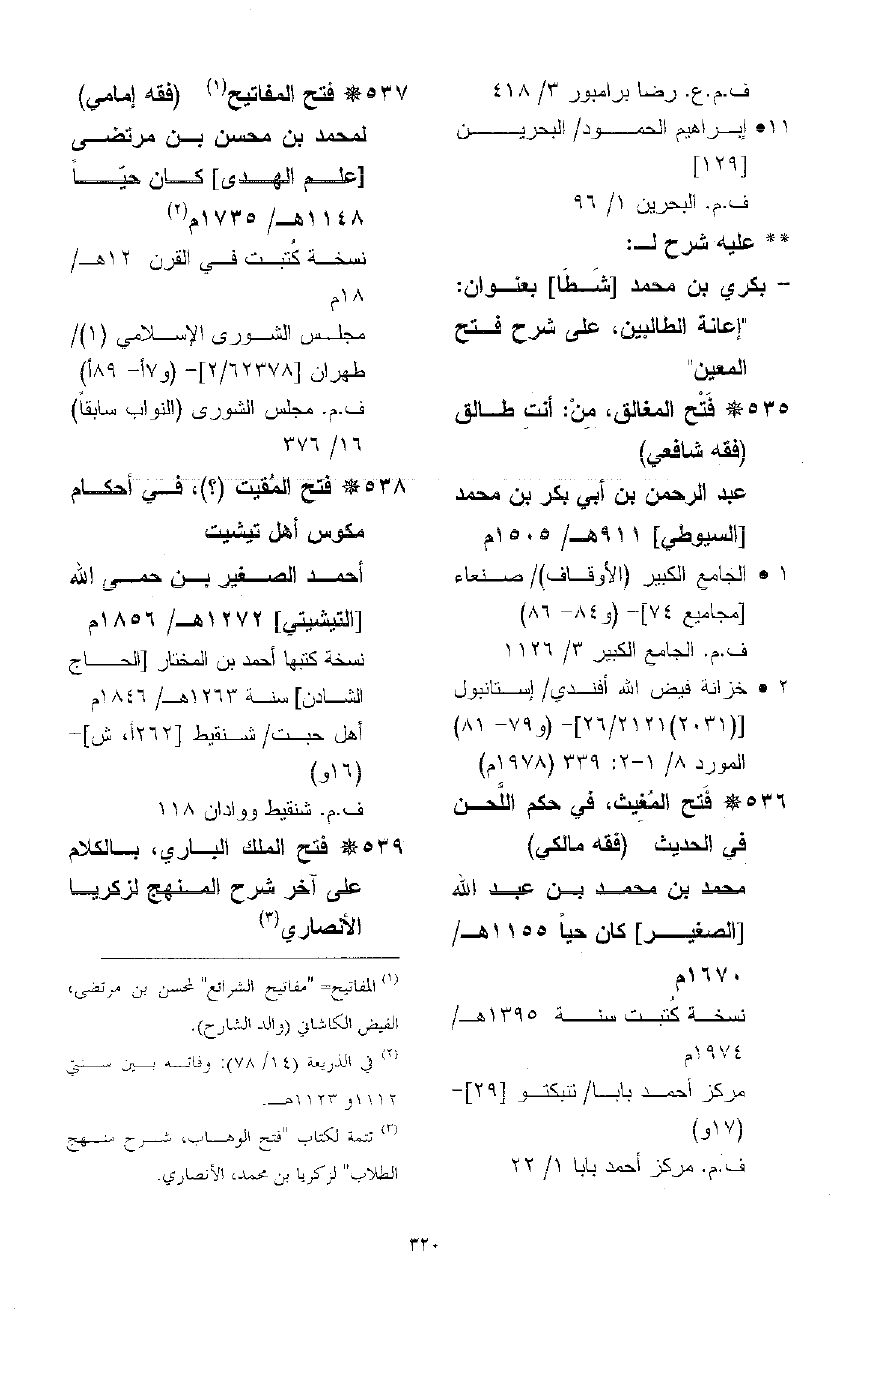 ف.م.ع. رضا برامبور ٣/ ٤١٨
١١• إبراهيم الحمود/ البحرين
[١٢٩]
ف.م. البحرين ١/ ٩٦
** عليه شرح لـ:
- بكري بن محمد [شَطَا] بعنوان:
"إعانة الطالبين، على شرح فتح
المعين"
٥٣٥* فَتْح المغالق، مِنْ: أنتِ طالق
(فقه شافعي)
عبد الرحمن بن أبي بكر بن محمد
[السيوطي] ٩١١هـ/ ١٥٠٥م
١ • الجامع الكبير (الأوقاف)/ صنعاء
[مجاميع ٧٤]- (و٨٤- ٨٦)
ف.م. الجامع الكبير ٣/ ١١٢٦
٢ • خزانة فيض الله أفندي/ إستانبول
[(٢٠٣١)٢٦/٢١٢١]- (و٧٩- ٨١)
المورد ٨/ ١-٢: ٣٣٩ (١٩٧٨م)
٥٣٦* فَتح المُغيث، في حكم اللَّحن
في الحديث (فقه مالكي)
محمد بن محمد بن عبد الله
[الصغير] كان حياً ١١٥٥هـ/
١٦٧٠م
نسخة كُتبت سنة ١٣٩٥هـ/
١٩٧٤م
مركز أحمد بابا/ تنبكتو [٢٩]-
(١٧و)
ف.م. مركز أحمد بابا ١/ ٢٢
٥٣٧* فتح المفاتيح(١) (فقه إمامي)
لمحمد بن محسن بن مرتضى
[علم الهدى] كان حيّاً
١١٤٨هـ/ ١٧٣٥م(٢)
نسخة كُتبت في القرن ١٢هـ/
١٨م
مجلس الشورى الإسلامي (١)/
طهران [٢/٦٢٣٧٨]- (و٧أ- ٨٩أ)
ف.م. مجلس الشورى (النواب سابقاً)
١٦/ ٣٧٦
٥٣٨* فتح المُقيت (؟)، في أحكام
مكوس أهل تيشيت
أحمد الصغير بن حمى الله
[التيشيتي] ١٢٧٢هـ/ ١٨٥٦م
نسخة كتبها أحمد بن المختار [الحاج
الشادن] سنة ١٢٦٣هـ/ ١٨٤٦م
أهل حبت/ شنقيط [٢٦٢أ، ش]-
(١٦و)
ف.م. شنقيط ووادان ١١٨
٥٣٩* فتح الملك الباري، بالكلام
على آخر شرح المنهج لزكريا
الأنصاري(٣)
(١) المفاتيح= "مفاتيح الشرائع" لمحسن بن مرتضى،
الفيض الكاشاني (والد الشارح).
(٢) في الذريعة (١٤/ ٧٨): وفاته بين سنتي
١١١٢و ١١٢٣هـ.
(٣) تتمة لكتاب "فتح الوهاب، شرح منهج
الطلاب" لزكريا بن محمد، الأنصاري.
٣٢٠